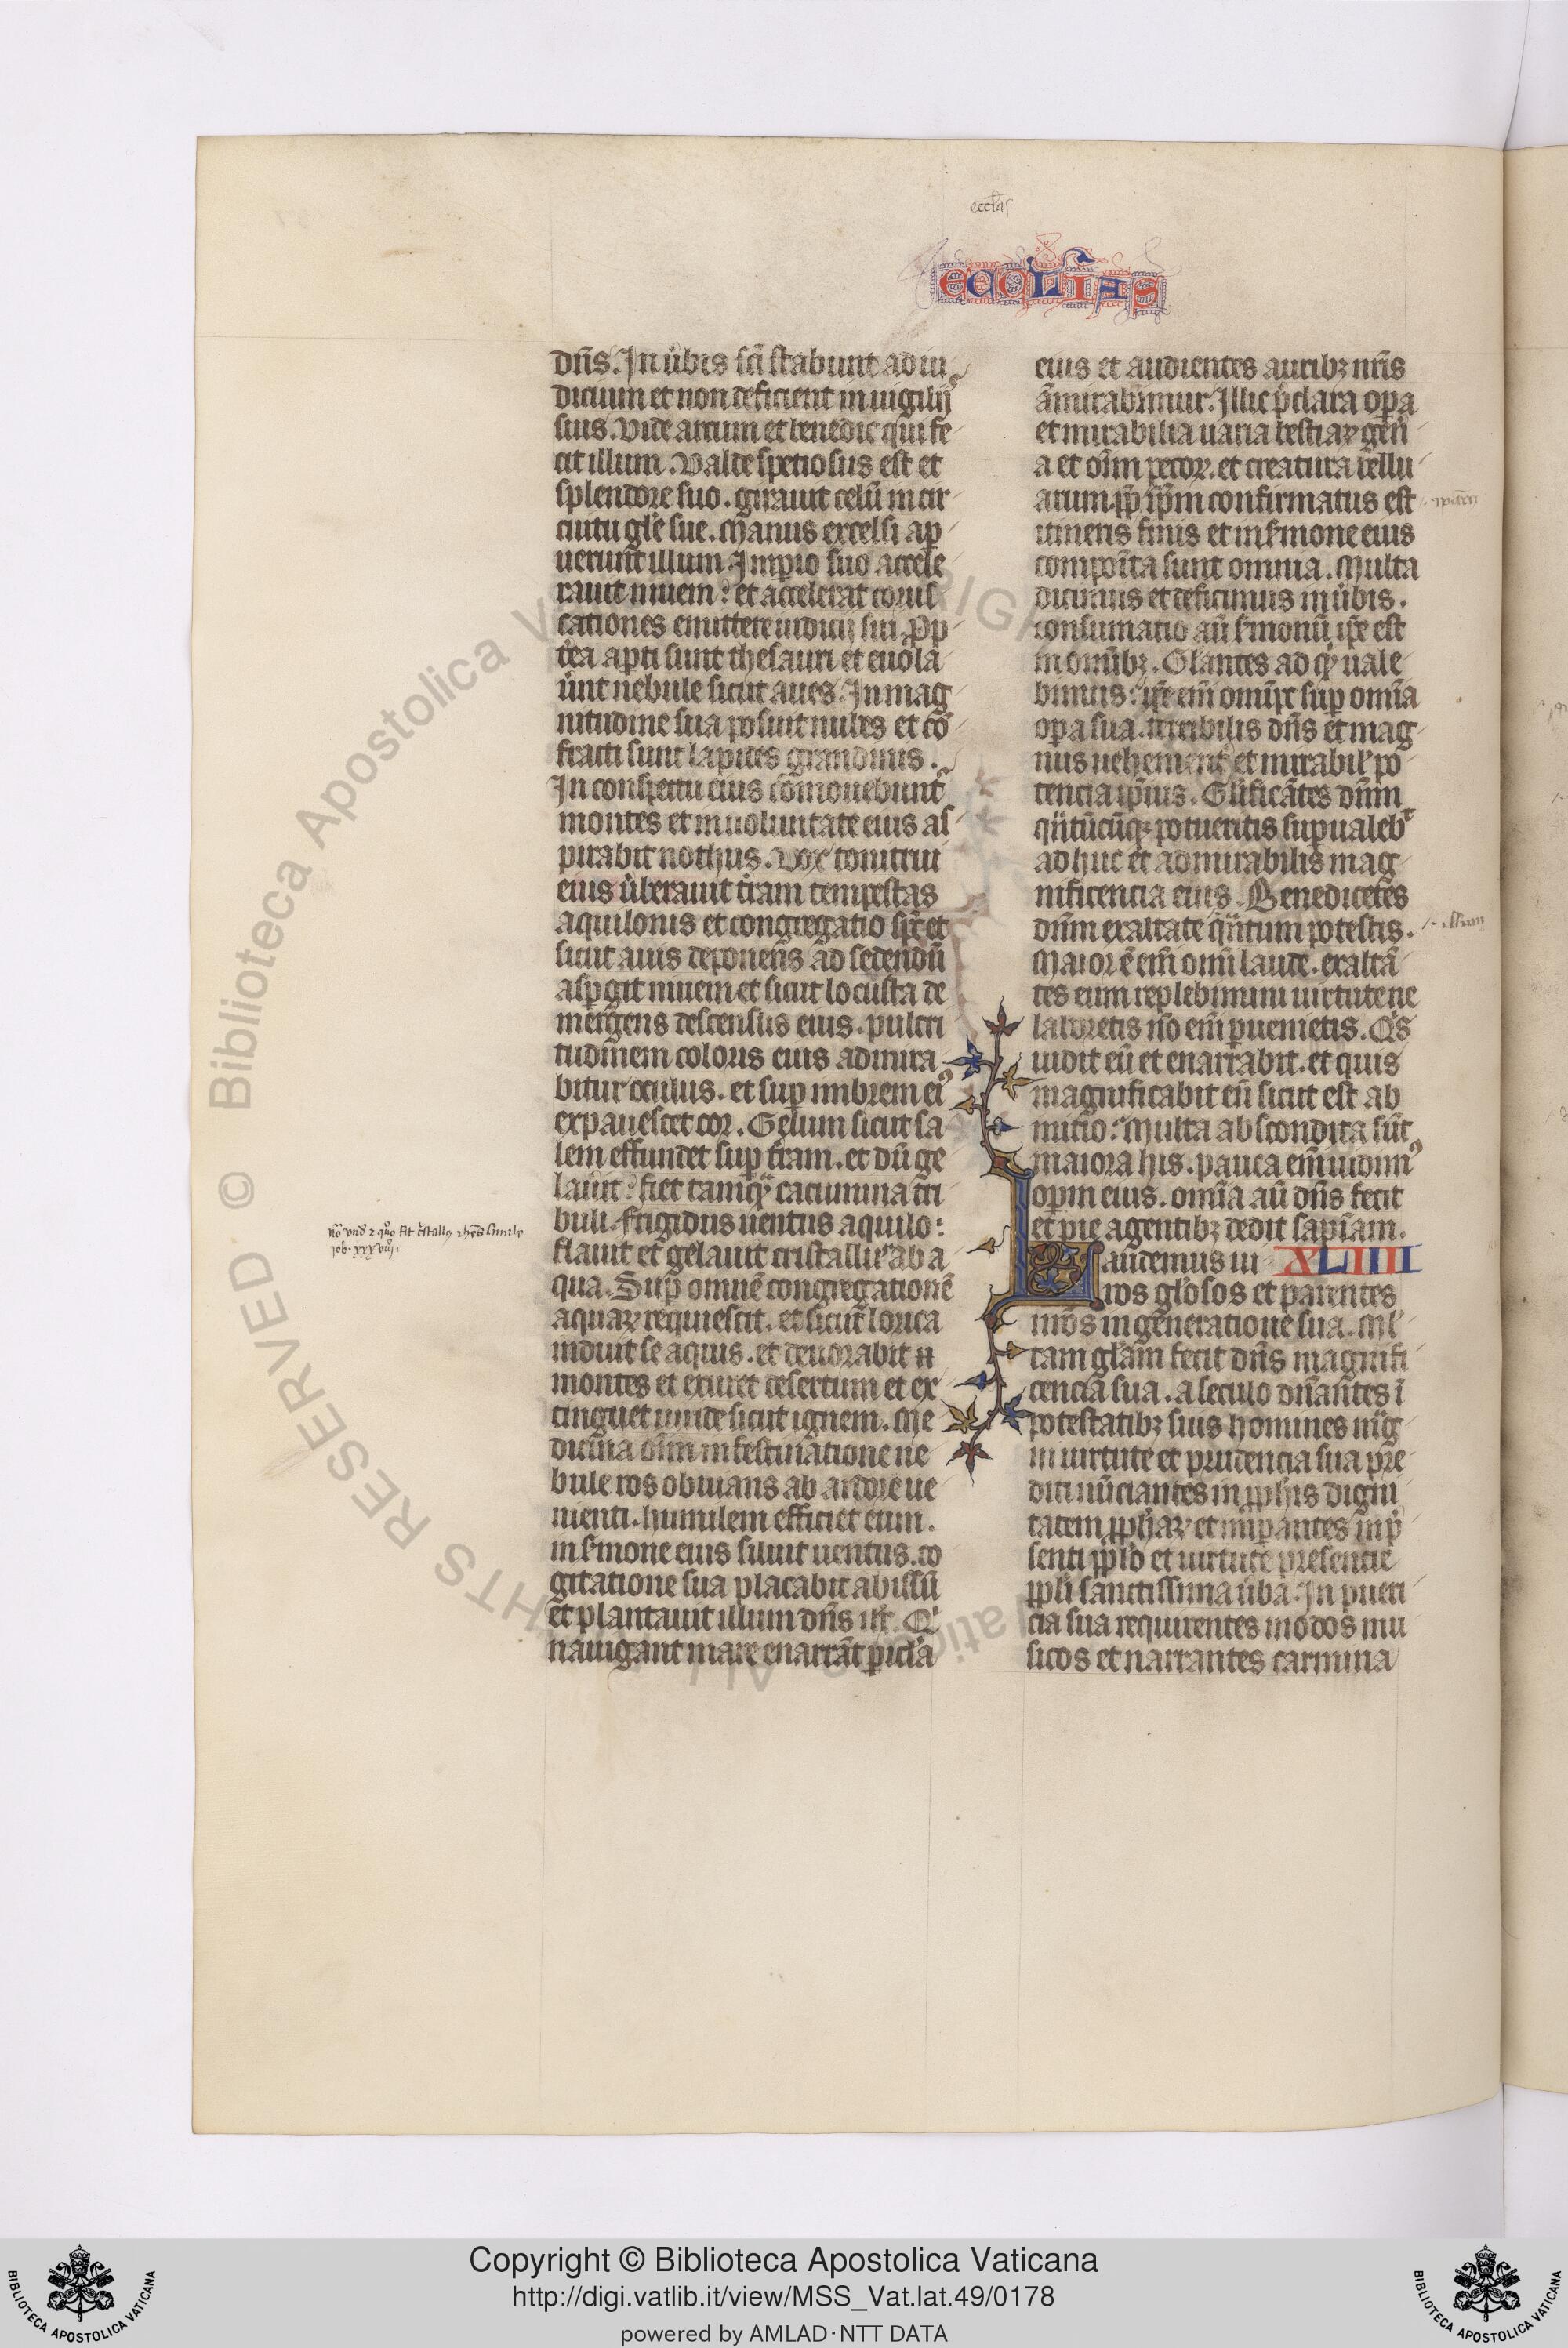 eccl̄as
ECCL'IAS
dn̄s. In ūbis sc̄i stabunt ad iu
dicium et non deficient in uigilijs
suis. Vide arcum et benedic qui fe
cit illum. Valde speciosus est et
splendore suo. girauit celū in cir
cuitu gl'e sue. Manus excelsi ap
uerunt illum. Imꝑio suo accele
rauit niuem: et accelerat corus
cationes emittere iudicij sui. Pp
t̄ea aꝑti sunt thesauri et euola
ūnt nebule sicut aues. In mag
nitudine sua posuit nubes et cō
fracti sunt lapides grandinis.
In conspectu eius cōmouebuntur
montes et in uoluntate eius as
pirabit nothus. Vox tonitrui
eius ūberauit t̄ram tempestas
aquilonis et congregatio sp̄c et
sicut auis deponens ad sedendū
aspgit niuem et sicut locusta de
mergens descensus eius. pulcri
tudinem coloris eius admira
bitur oculus. et suꝑ imbrem eiꝰ
expauescet cor. Gelum sicut sa
lem effundet suꝑ t̄ram. et dū ge
lauit: fiet tamqͣ cacumina tri
buli. Frigidus uentus aquilo:
flauit et gelauit cristallꝰ ab a
qua. Suꝑ omnē congregationē
aquaꝝ requiescit. et sicut lorica
induit se aquis. et deuorabit
montes et exuret desertum et ex
tinguet uiride sicut ignem. Me
dicina oīm in festinatione ne
bule ros obuians ab ardore ue
nienti. humilem efficiet eum.
in s̄mone eius siluit uentus. co
gitatione sua placabit abissū
et plantauit illum dn̄s ih̄c. Qͥ
nauigant mare enarrāt ꝑicl'a
nō vnd̄ 2 quo fit c̄stallꝰ
job. xxxviij.
eius et audientes auribꝫ nr̄is
āmirabimur. Illic p̄clara oꝑa
et mirabilia uaria bestiaꝝ gen̄
a et oīm pecoꝝ. et creatura bellu
arum. ꝓp ip̄m confirmatus est
itineris finis et in s̄mone eius
composita sunt omnia. Multa
dicimus et deficimus in ūbis.
consumatio aū s̄monū ip̄e est
in omībꝫ. Gl'antes ad qͥ uale
bimus: ip̄e em̄ omīp̄c suꝑ omīa
oꝑa sua. terribilis dn̄s et mag
nus uehement̄ et mirabil' po
tencia ip̄ius. Gl'ificātes dn̄m
qͣntūcūqꝫ potueritis suꝑualebᷣ
ad huc et admirabilis mag
nificencia eius. Benedicētes
dn̄m exaltate qͣntum potestis.
illum
Maior ē em̄ omī laude. exaltā
tes eum replebimini uirtute ne
laboretis nō em̄ ꝑuenietis. Qͥs
uidit eū et enarrabit. et quis
magnificabit eū sicut est ab
initio: Multa abscondita sūt
maiora his. pauca em̄ uidimꝰ
oꝑum eius. omīa aū dn̄s fecit
et pie agentibꝫ dedit sapīam.
Laudemus ui XLIIII
ros gl'osos et parentes
nr̄os in generatione sua. Ml'
tam gl'am fecit dn̄s magnifi
cencia sua. a seculo dn̄antes ī
potestatibꝫ suis homines mag
ni uirtute et prudencia sua pre
diti nūciantes in ꝓphīs digni
tatem ꝓphaꝝ et imꝑantes in p̄
senti ppl'o et uirtute presencie
ppl'i sanctissima ūba. In pueri
cia sua requirentes modos mu
sicos et narrantes carmina
© Biblioteca Apostolica Vaticana
ALL RIGHTS RESERVED
Copyright © Biblioteca Apostolica Vaticana
http://digi.vatlib.it/view/MSS_Vat.lat.49/0178
powered by AMLAD·NTT DATA
BIBLIOTECA APOSTOLICA VATICANA
BIBLIOTECA APOSTOLICA VATICANA